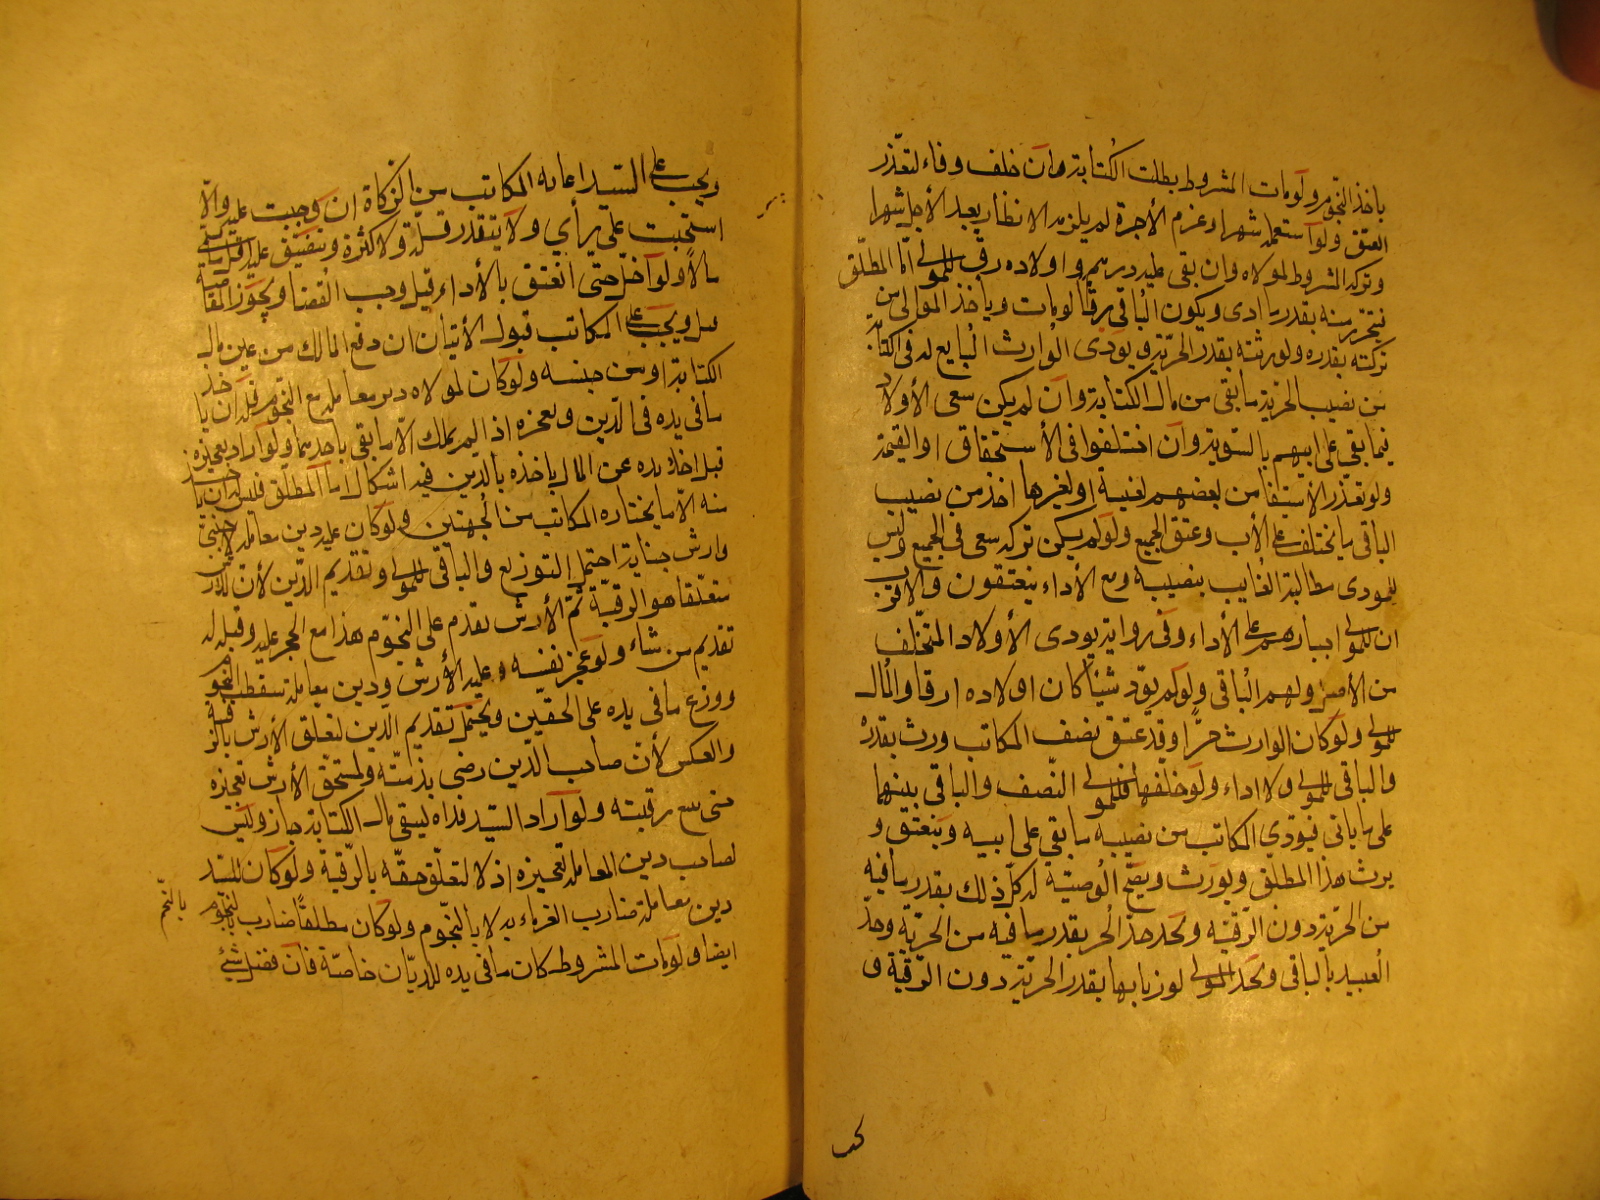 ياخذ النجوم ولو مات المشروط بطلت الكتابة وان خلف وفاء لتعذر
العتق ولو استعمله شهرا وغرم الأجرة لم يلزمه الانظار بعد الأجل شهرا
وتركة المشروط لمولاه وان بقى عليه درهم واولاده رق للمولى امّا المطلق
يتحرر منه بقدر ما ادى ويكون الباقى رقا لو مات وياخذ المولى من
تركته بقدره ولورثته بقدر الحرية ويودى الوارث التابع له فى الكتابة
من نصيب الحرية ما بقى من مال الكتابة وان لم يكن سعى الأولاد
فيما بقى على ابيهم بالسوية وان اختلفوا فى الأستحقاق او القيمة
ولو تعذر الأستيفا من بعضهم لغيبة او لغيرها اخذ من نصيب
الباقى ما تخلف على الأب وعتق الجميع ولو لم يكن تركه سعى فى الجميع وليس
للمودى مطالبة الغايب بنصيبه ومع الأداء ينعتقون والاقرب
ان للمولى اجبارهم على الأداء وفى رواية يودى الأولاد المتخلف
من الأصل ولهم الباقى ولو لم يود شيئا كان اولاده ارقا والمال
للمولى ولو كان الوارث حرا وقد عتق نصف المكاتب ورث بقدره
والباقى للمولى ولا اداء ولو خلفهما فللمولى النصف والباقى بينهما
على ما ياتى فيؤدي المكاتب من نصيبه ما بقي على ابيه وينعتق و
يرث هذا المطلق ويورث ويصح الوصية له كل ذلك بقدر ما فيه
من الحرية دون الرقية ويحد حد الحر بقدر ما فيه من الحرية وحد
العبيد بالباقى ويحد المولى لو زنا بها بقدر الحرية دون الرقية و
ويجب على السيد اعانة المكاتب من الزكاة ان وجبت عليه والا
استحبت على رأي ولا يتقدر قلة ولا كثرة ويتضيق عليه
مالا ولو اخل حتى انعتق بالأداء قيل وجب القضا ويجوز المقاصة
ويجب على المكاتب قبول الأتيان ان دفع المالك من عين مال
الكتابة او من جنسه ولو كان لمولاه دين معاملة مع النجوم فله ان ياخذ
ما فى يده فى الدين ويعجزه اذا لم يملك الا ما بقى باحديهما ولو اراد تعجيزه
قبل اخذ يده عن المال ياخذه بالدين فيه اشكال اما المطلق فليس له ان ياخذ
منه الا ما يختاره المكاتب من الجهتين ولو كان عليه دين معاملة لاجنبى
وارش جناية احتمل التوزيع والباقى للمولى وتقديم الدين لأن للارش
متعلقا هو الرقبة ثم الأرش يقدم على النجوم هذا مع الحجر عليه وقبله له
تقديم من شاء ولو عجز نفسه وعليه الأرش ودين معاملة سقطت النجوم
ووزع ما فى يده على الحقين ويحتمل تقديم الدين لتعلق الأرش بالرقبة
والعكس لأن صاحب الدين رضى بذمته ولمستحق الأرش تعجيزه
حتى يبيع رقبته ولو اراد السيد فداه ليبقى مال الكتابة جاز وليس
لصاحب دين المعاملة تعجيزه اذ لا تتعلق حقه بالرقبة ولو كان للسيد
دين معاملة ضارب الغرماء به لا بالنجوم ولو كان مطلقا ضارب بالنجوم
بالنجم
ايضا ولو مات المشروط كان ما فى يده للديان خاصة فان فضل شئ